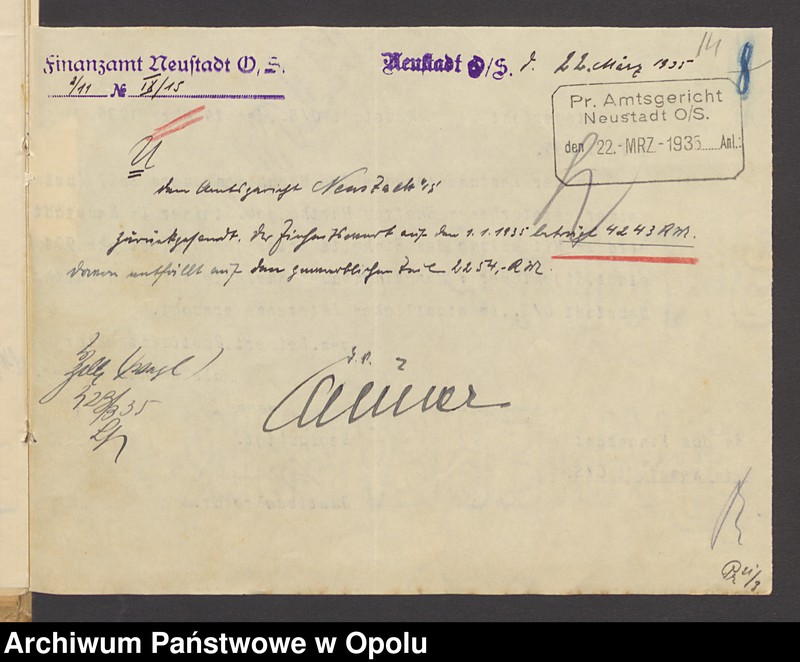 Finanzamt Neustadt O,S.
Neustadt O/S. d. 22. März 1935
14
8
2/11 № IX/15
Pr. Amtsgericht
Neustadt O/S.
den 22.-MRZ.-1935 Anl.:
U
dem Amtsgericht Neustadt O/S
zurückgesandt. Der Einheitswert auf den 1.1.1935 beträgt 4243 RM.
Davon entfällt auf den gewerblichen Teil 2254,- RM.
J. V.
Archiwum Państwowe w Opolu